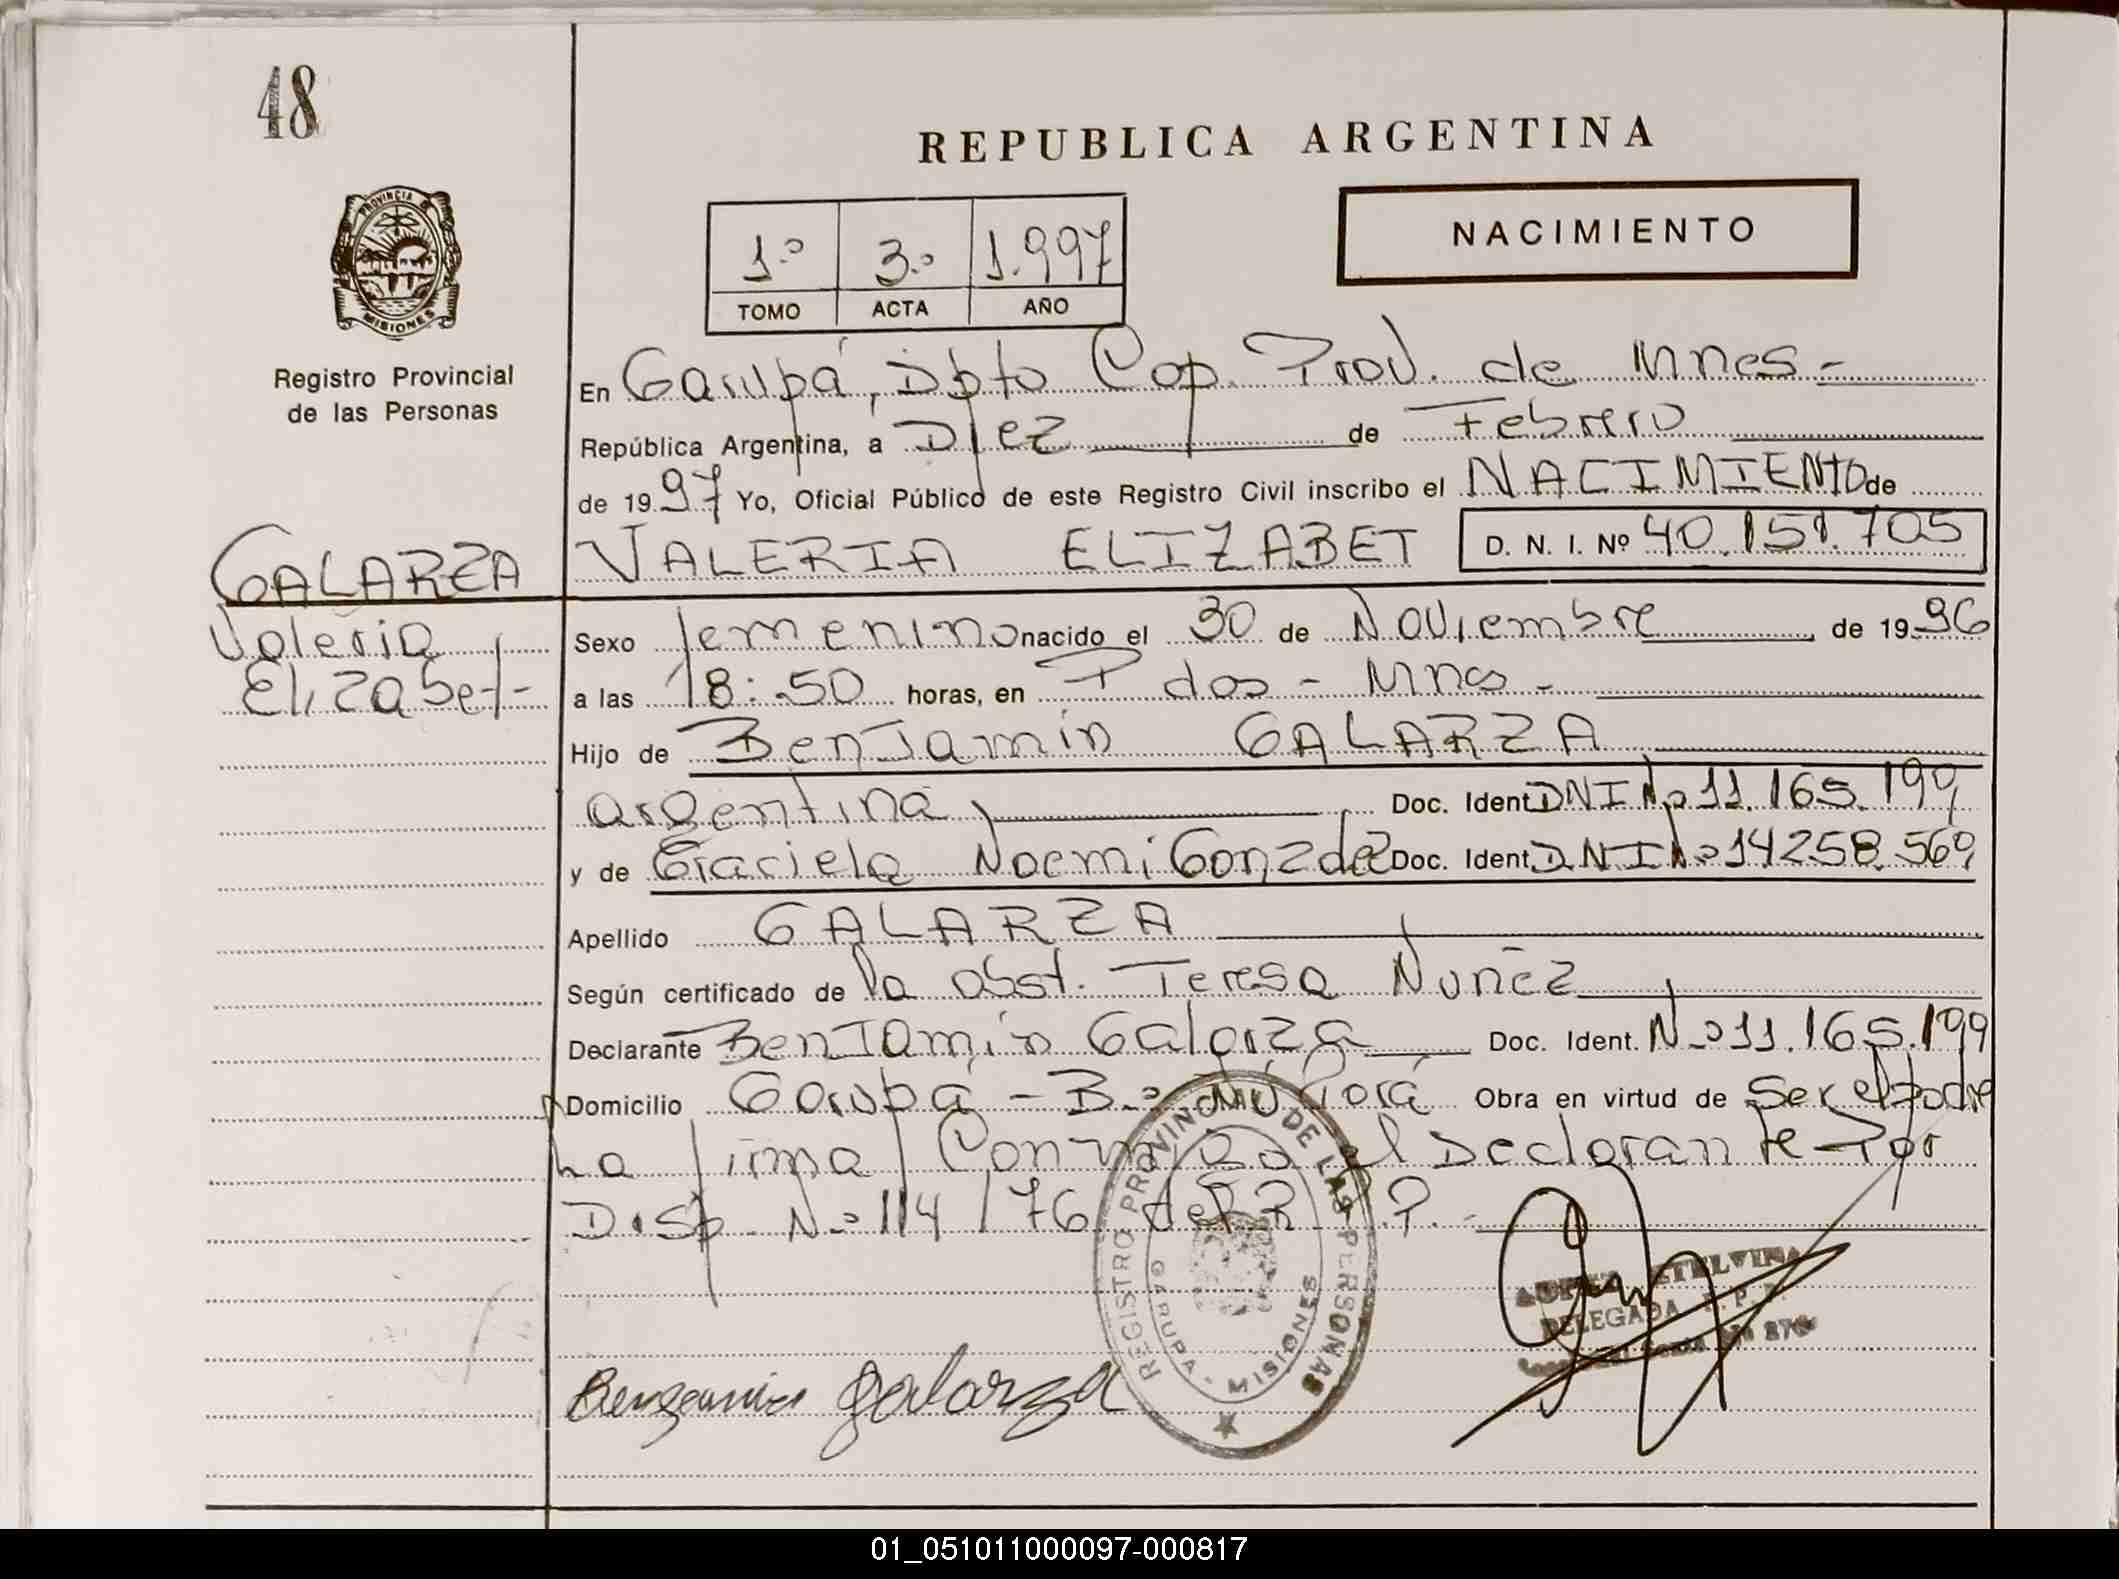 48
REPUBLICA ARGENTINA
PROVINCIA DE
MISIONES
Registro Provincial
de las Personas
1.º 3.º 1.997
TOMO ACTA AÑO
NACIMIENTO
En Garupá, Dpto Cap. Prov. de Mnes -
República Argentina, a Diez de Febrero
de 1997 Yo, Oficial Público de este Registro Civil inscribo el NACIMIENTO de
VALERIA ELIZABET D. N. I. Nº 40.151.705
GALARZA
Valeria
Elizabet-
Sexo femenino nacido el 30 de Noviembre de 1996
a las 18:50 horas, en Pdas - Mnes -
Hijo de Benjamin GALARZA
argentina, Doc. Ident. DNI Nº 11.165.199
y de Graciela Noemi Gonzalez Doc. Ident. DNI Nº 14258.569
Apellido GALARZA
Según certificado de la obst. Teresa Nuñez
Declarante Benjamin Galarza Doc. Ident. Nº 11.165.199
Domicilio Garupá - Bº Ñu Porá Obra en virtud de Ser el padre
La firma Conmigo el Declarante - Por
Disp. Nº 114/76 del R.P.P. -
REGISTRO PROVINCIAL DE LAS PERSONAS
GARUPA - MISIONES
ETELVINA
DELEGADA R. P. P.
Benjamin Galarza
01_051011000097-000817